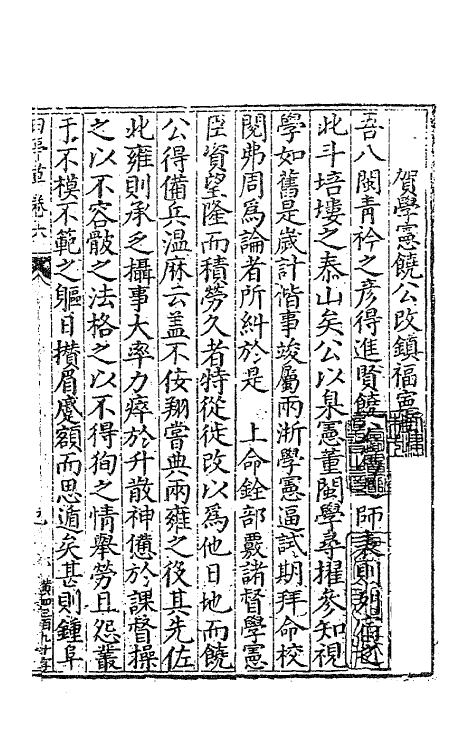 賀學憲饒公改鎮福寧
吾八閩青衿之彥得進賢饒公 師表則
此斗培塿之泰山矣公以臬憲董閩學尋擢參知視
學如舊是歲計偕事竣屬兩浙學憲逼試期拜命校
閱弗周爲論者所糾於是 上命銓部覈諸督學憲
臣資望隆而積勞久者特從徙改以爲他日地而饒
公得備兵温麻云盖不佞翔嘗典兩雍之後其先佐
此雍則承之攝事大率力瘁於升散神憊於課督操
之以不容骰之法格之以不得徇之情舉勞且怨叢
于不模不範之軀日攢眉蹙額而思遁矣甚則鍾阜
卷六